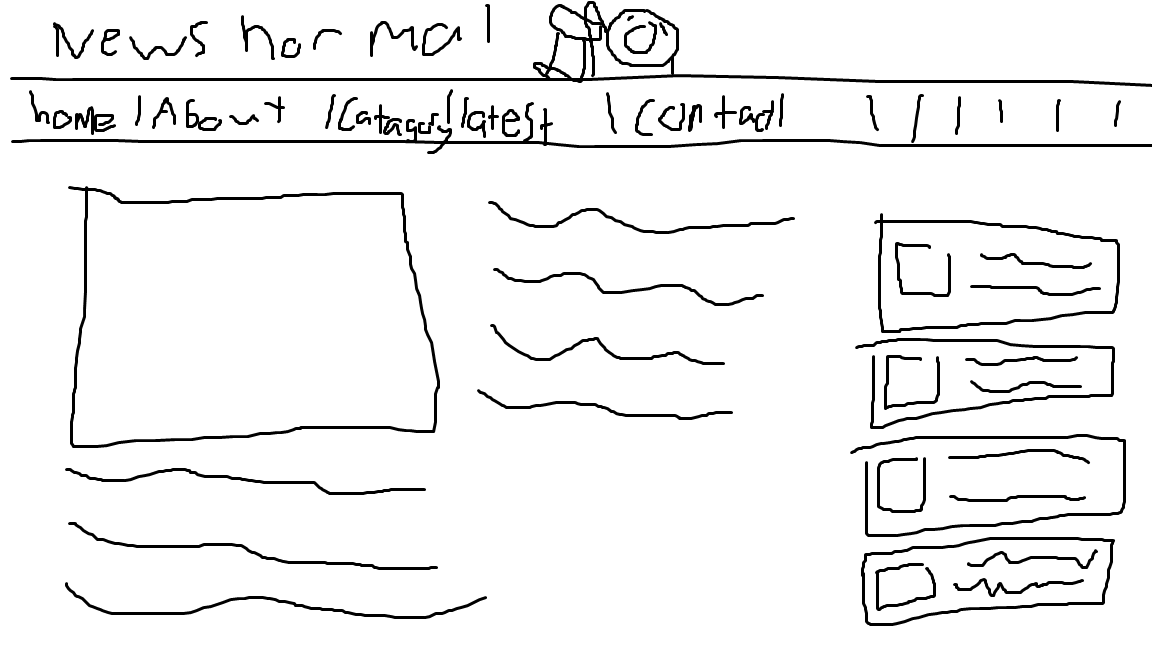 News hormal
home | About | Catagory | latest | Contact | | | | | |